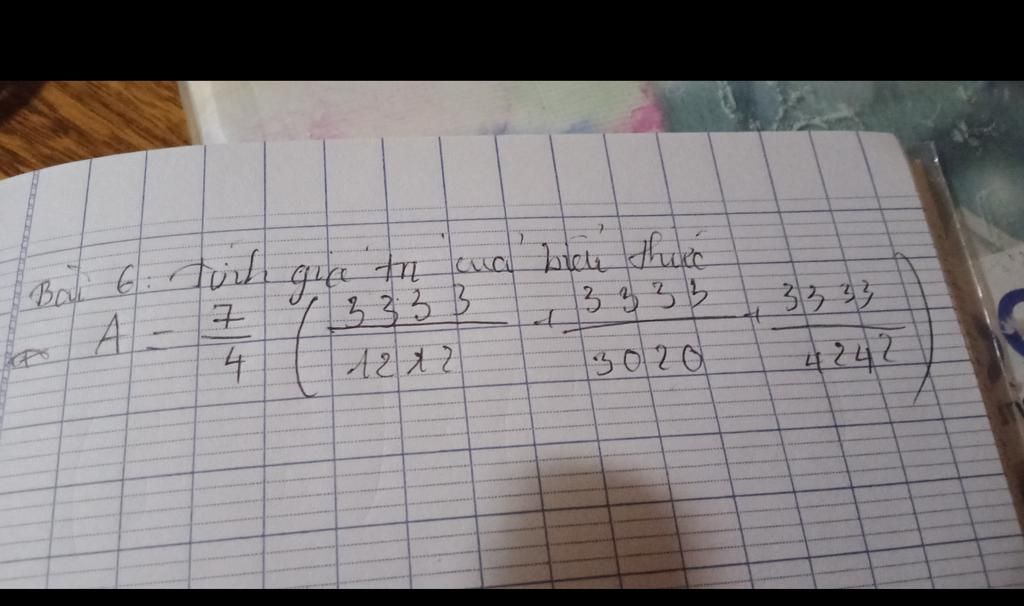 Bài 6: Tính giá trị của biểu thức
A = 7/4 ( 3333/1212 + 3333/3020 + 3333/4242 )